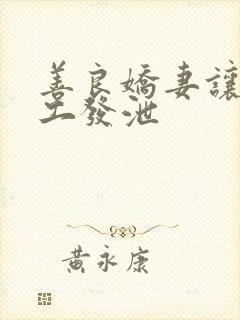 善良嬌妻讓
工發泄
黃永康